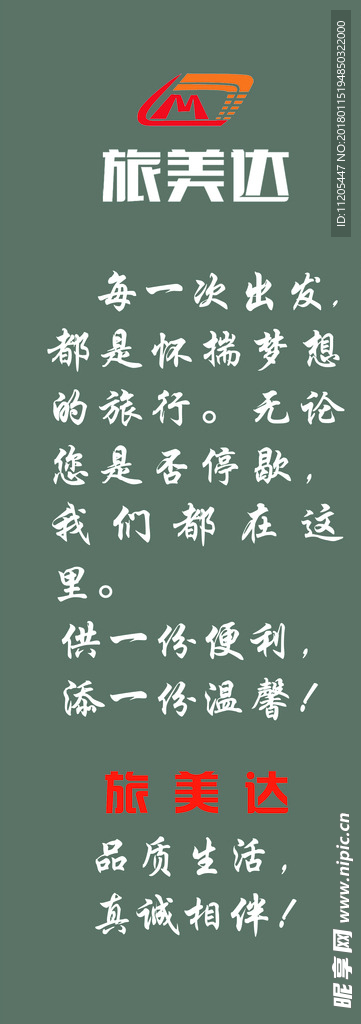 旅美达
每一次出发，
都是怀揣梦想
的旅行。无论
您是否停歇，
我们都在这
里。
供一份便利，
添一份温馨！
旅美达
品质生活，
真诚相伴！
ID:11205447 NO:20180115194850322000
昵享网 www.nipic.cn